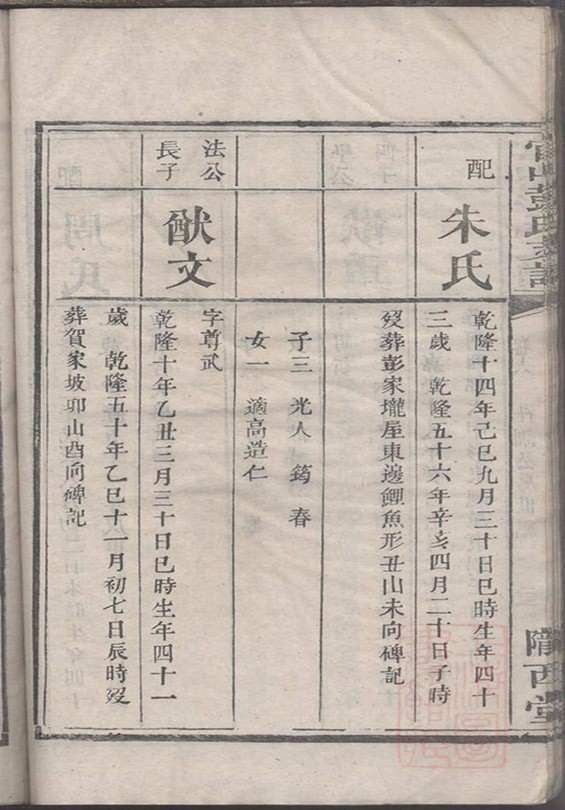 彭氏支譜
隴西堂
配
朱氏
乾隆十四年己巳九月三十日巳時生年四十
三歲 乾隆五十六年辛亥四月二十日子時
歿葬彭家壠屋東邊鯉魚形丑山未向碑記
子三 光人 筠 春
女一 適高造仁
法公
長子
猷文
字尊武
乾隆十年乙丑三月三十日巳時生年四十一
歲 乾隆五十年乙巳十一月初七日辰時歿
葬賀家坡卯山酉向碑記